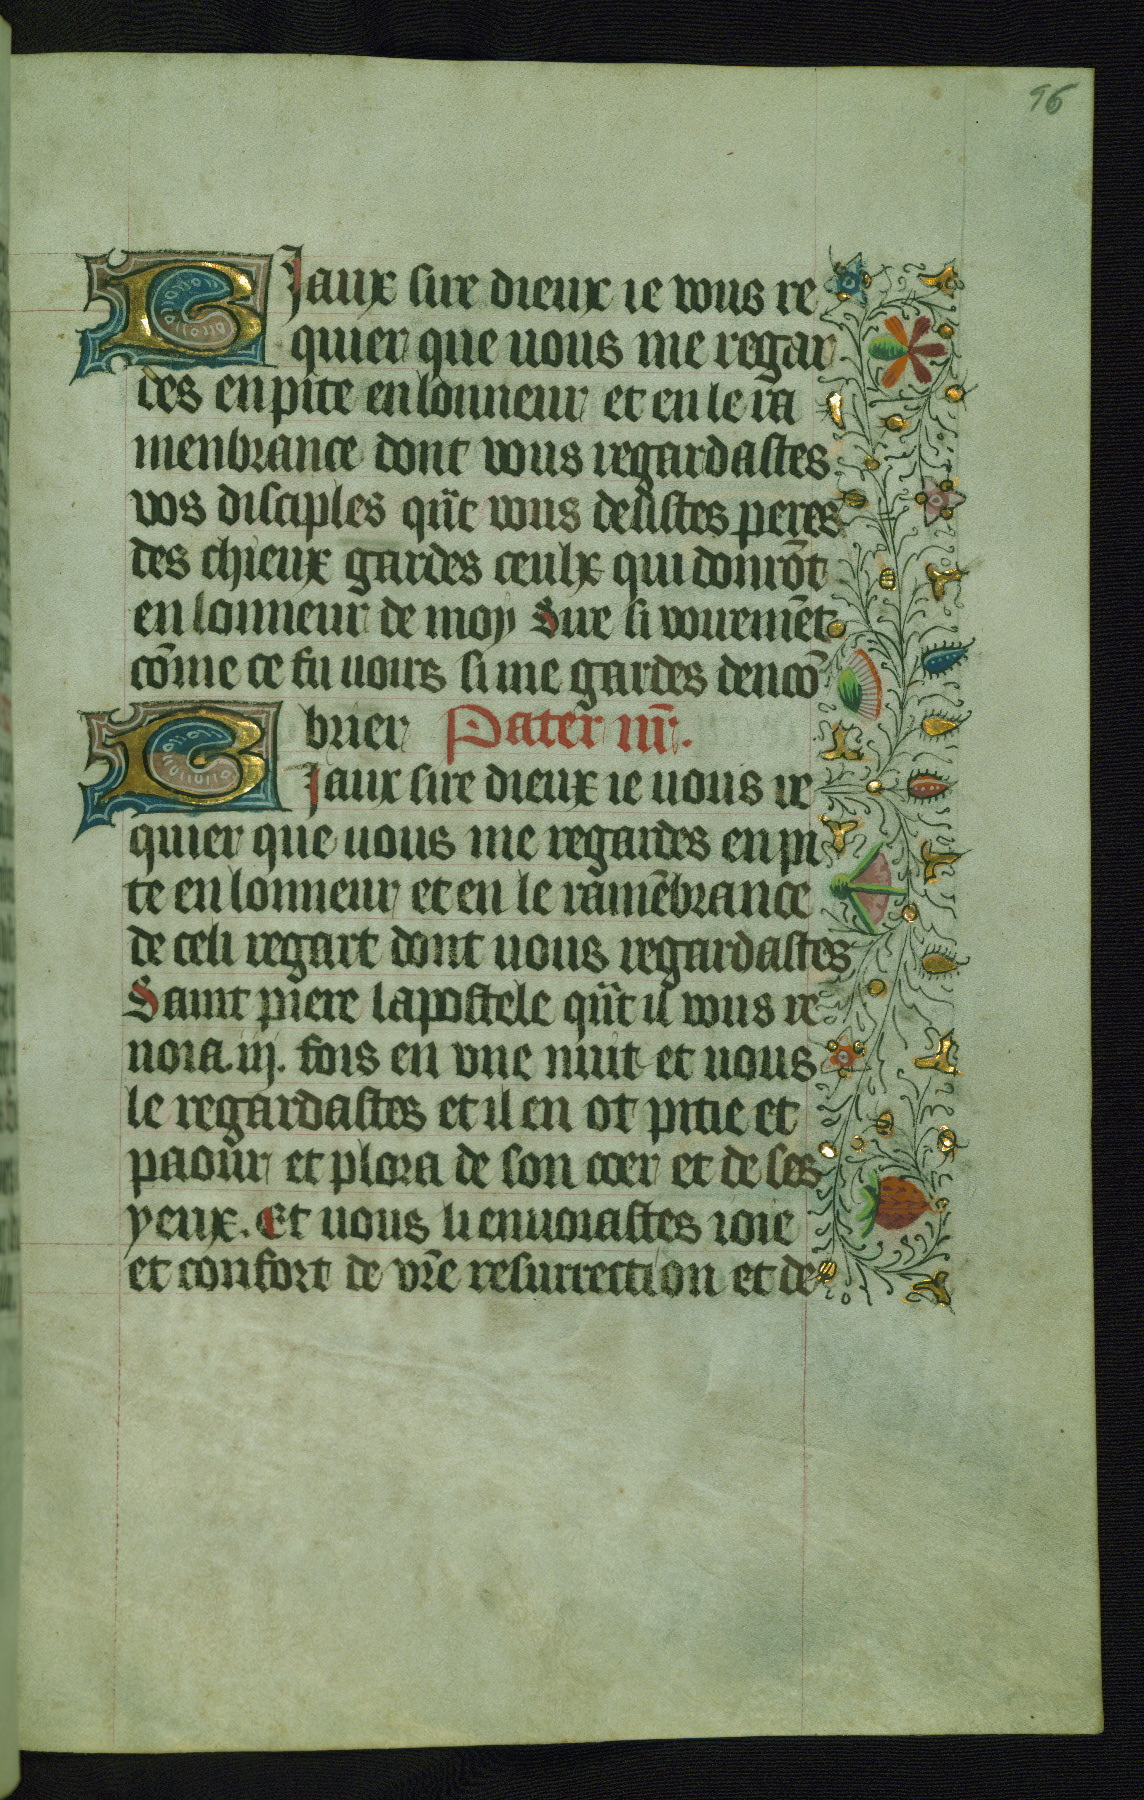 96
BIaux sire dieux ie vous re
quier que uous me regar
des en pite en lonneur et en le ra
menbrance dont vous regardastes
vos disciples qñt vous desistes peres
des chieux gardes ceulx qui donrōt
en lonneur de moy Sire si vouremēt
cōme ce fu uoirs si me gardes dencō
brier Pater nr̄.
BIaux sire dieux ie uous re
quier que uous me regardes en pi
te en lonneur et en le ramēbrance
de celi regart dont uous regardastes
Saint piere lapostele qñt il vous re
noia .iij. fois en vne nuit et uous
le regardastes et il en ot pitie et
paour et plora de son coer et de ses
yeux. Et uous li enuoiastes ioie
et confort de vr̄e resurrection et de